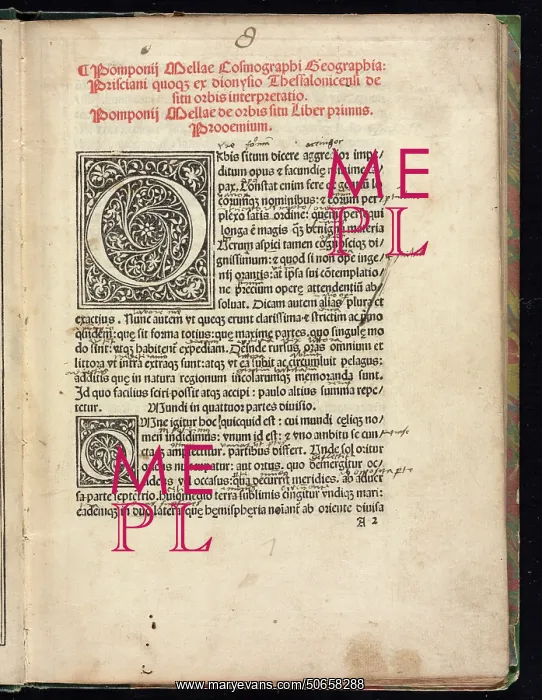 8
¶ Pomponij Mellae Cosmographi Geographia:
Prisciani quoqꝫ ex dionysio Thessalonicensi de
situ orbis interpretatio.
Pomponij Mellae de orbis situ Liber primus.
Prooemium.
ORbis situm dicere aggredior impe/
ditum opus ⁊ facundię minime
pax. Constat enim fere ex
locorumqꝫ nominibus: ⁊ eorum per/
plexo satis ordine: quem persequi
longa é magis qꝫ benigna materia
Verum aspici tamen cognosciqꝫ di/
gnissimum: ⁊ quod si non ope inge/
nij orantis: at ipsa sui cótemplatio/
ne precium opere attendentiũ ab/
soluat. Dicam autem alias plura et
exactius. Nunc autem vt queqꝫ erunt clarissima ⁊ strictim ac
quidem: que sit forma totius: que maxime partes. quo singule mo
do sint: atqꝫ habitent expediam. Deinde rursus oras omnium et
littora vt intra extraqꝫ sunt: atqꝫ vt ea subit ac circumluit pelagus:
additis que in natura regionum incolarumqꝫ memoranda sunt.
Id quo facilius sciri possit atqꝫ accipi: paulo altius summa repe/
tetur. Mundi in quattuor partes diuisio.
OMne igitur hoc quicquid est: cui mundi celiqꝫ no/
men indidimus: vnum id est: ⁊ vno ambitu se cun/
ctaqꝫ amplectitur. partibus differt. Vnde sol oritur
oriens nuncupatur: aut ortus. quo demergitur occ/
idens vel occasus: qua decurrit meridies. ab aduer
sa parte septẽtrio. huius medio terra sublimis cingitur vndiqꝫ mari:
eademqꝫ in duo latera que hemispheria noíant ab oriente diuisa
A 2
ME
PL
ME
PL
www.maryevans.com/50658288